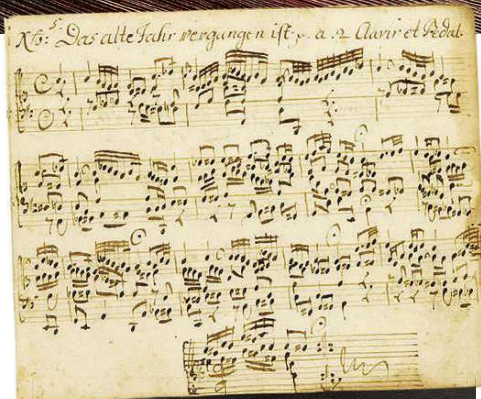 No: 5. Das alte Jahr vergangen ist p. a. 2 Clavir et Pedal.